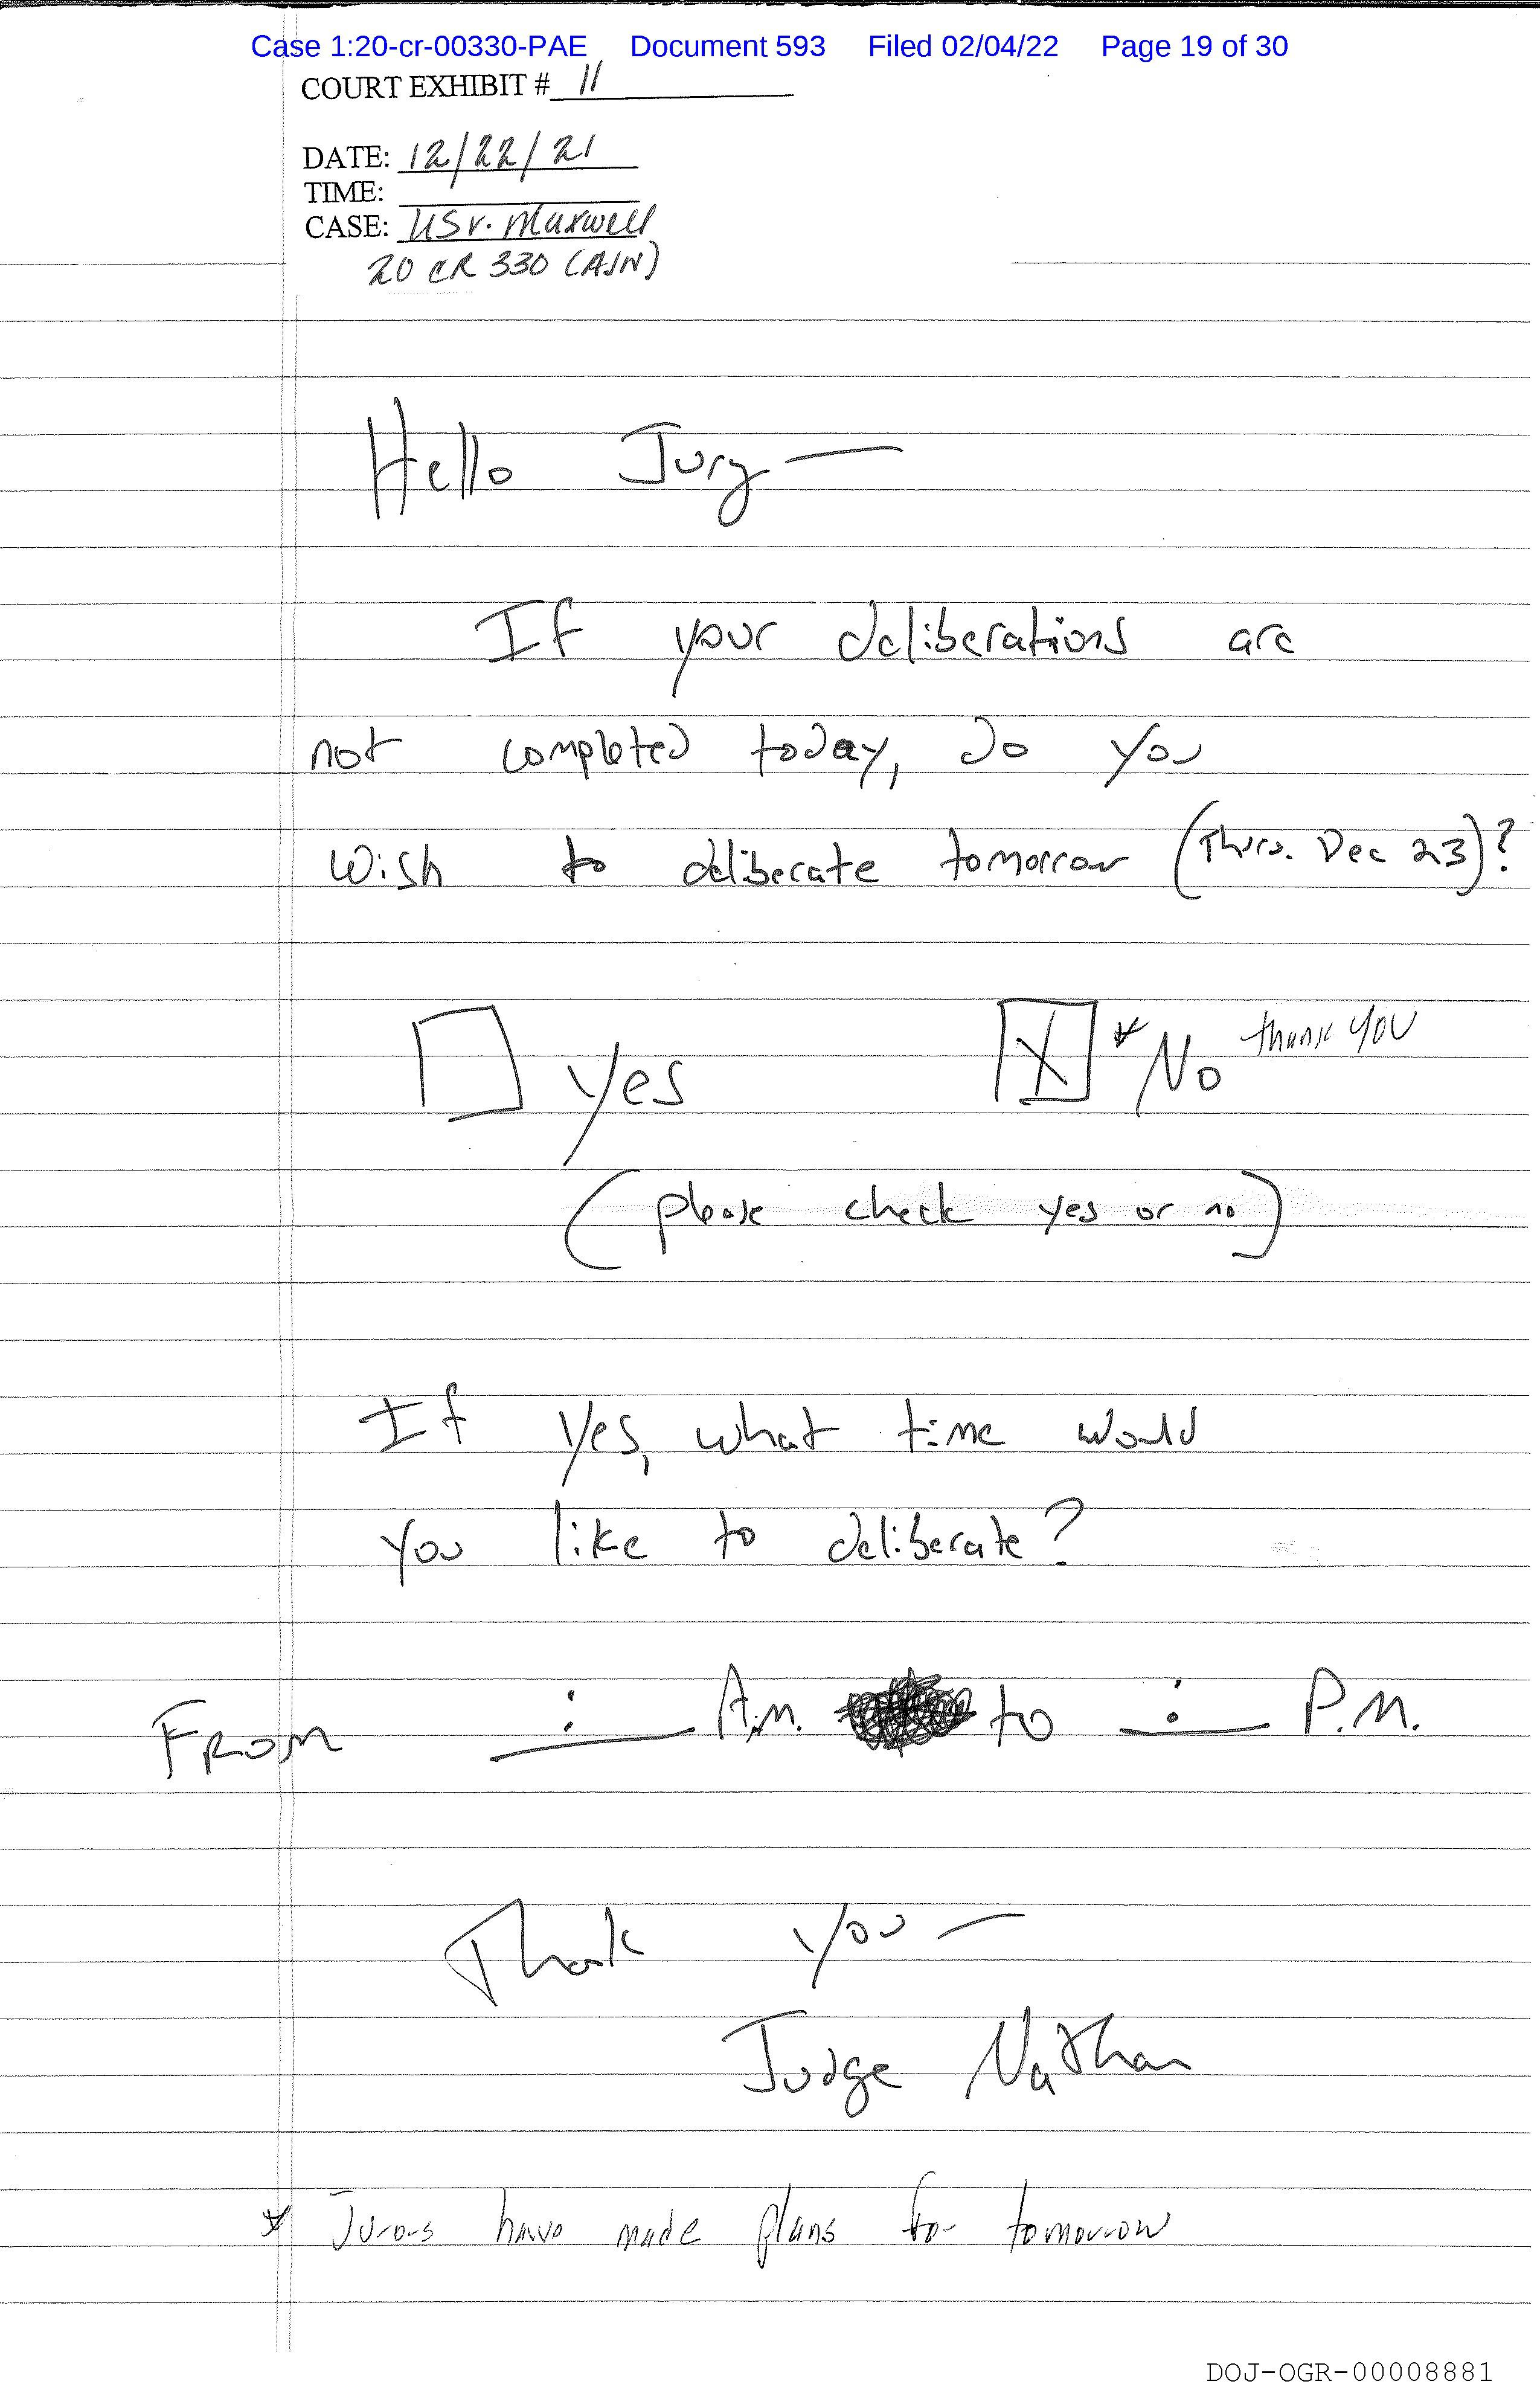 Case 1:20-cr-00330-PAE Document 593 Filed 02/04/22 Page 19 of 30
COURT EXHIBIT # 11
DATE: 12/22/21
TIME:
CASE: US v. Maxwell
20 CR 330 (AJN)
Hello Jury —
If your deliberations are
not completed today, do you
wish to deliberate tomorrow (Thurs. Dec 23)?
Yes X * No thank you
(please check yes or no)
If yes, what time would
you like to deliberate?
FROM : A.M. to : P.M.
Thank you —
Judge Nathan
* Jurors have made plans for tomorrow
DOJ-OGR-00008881